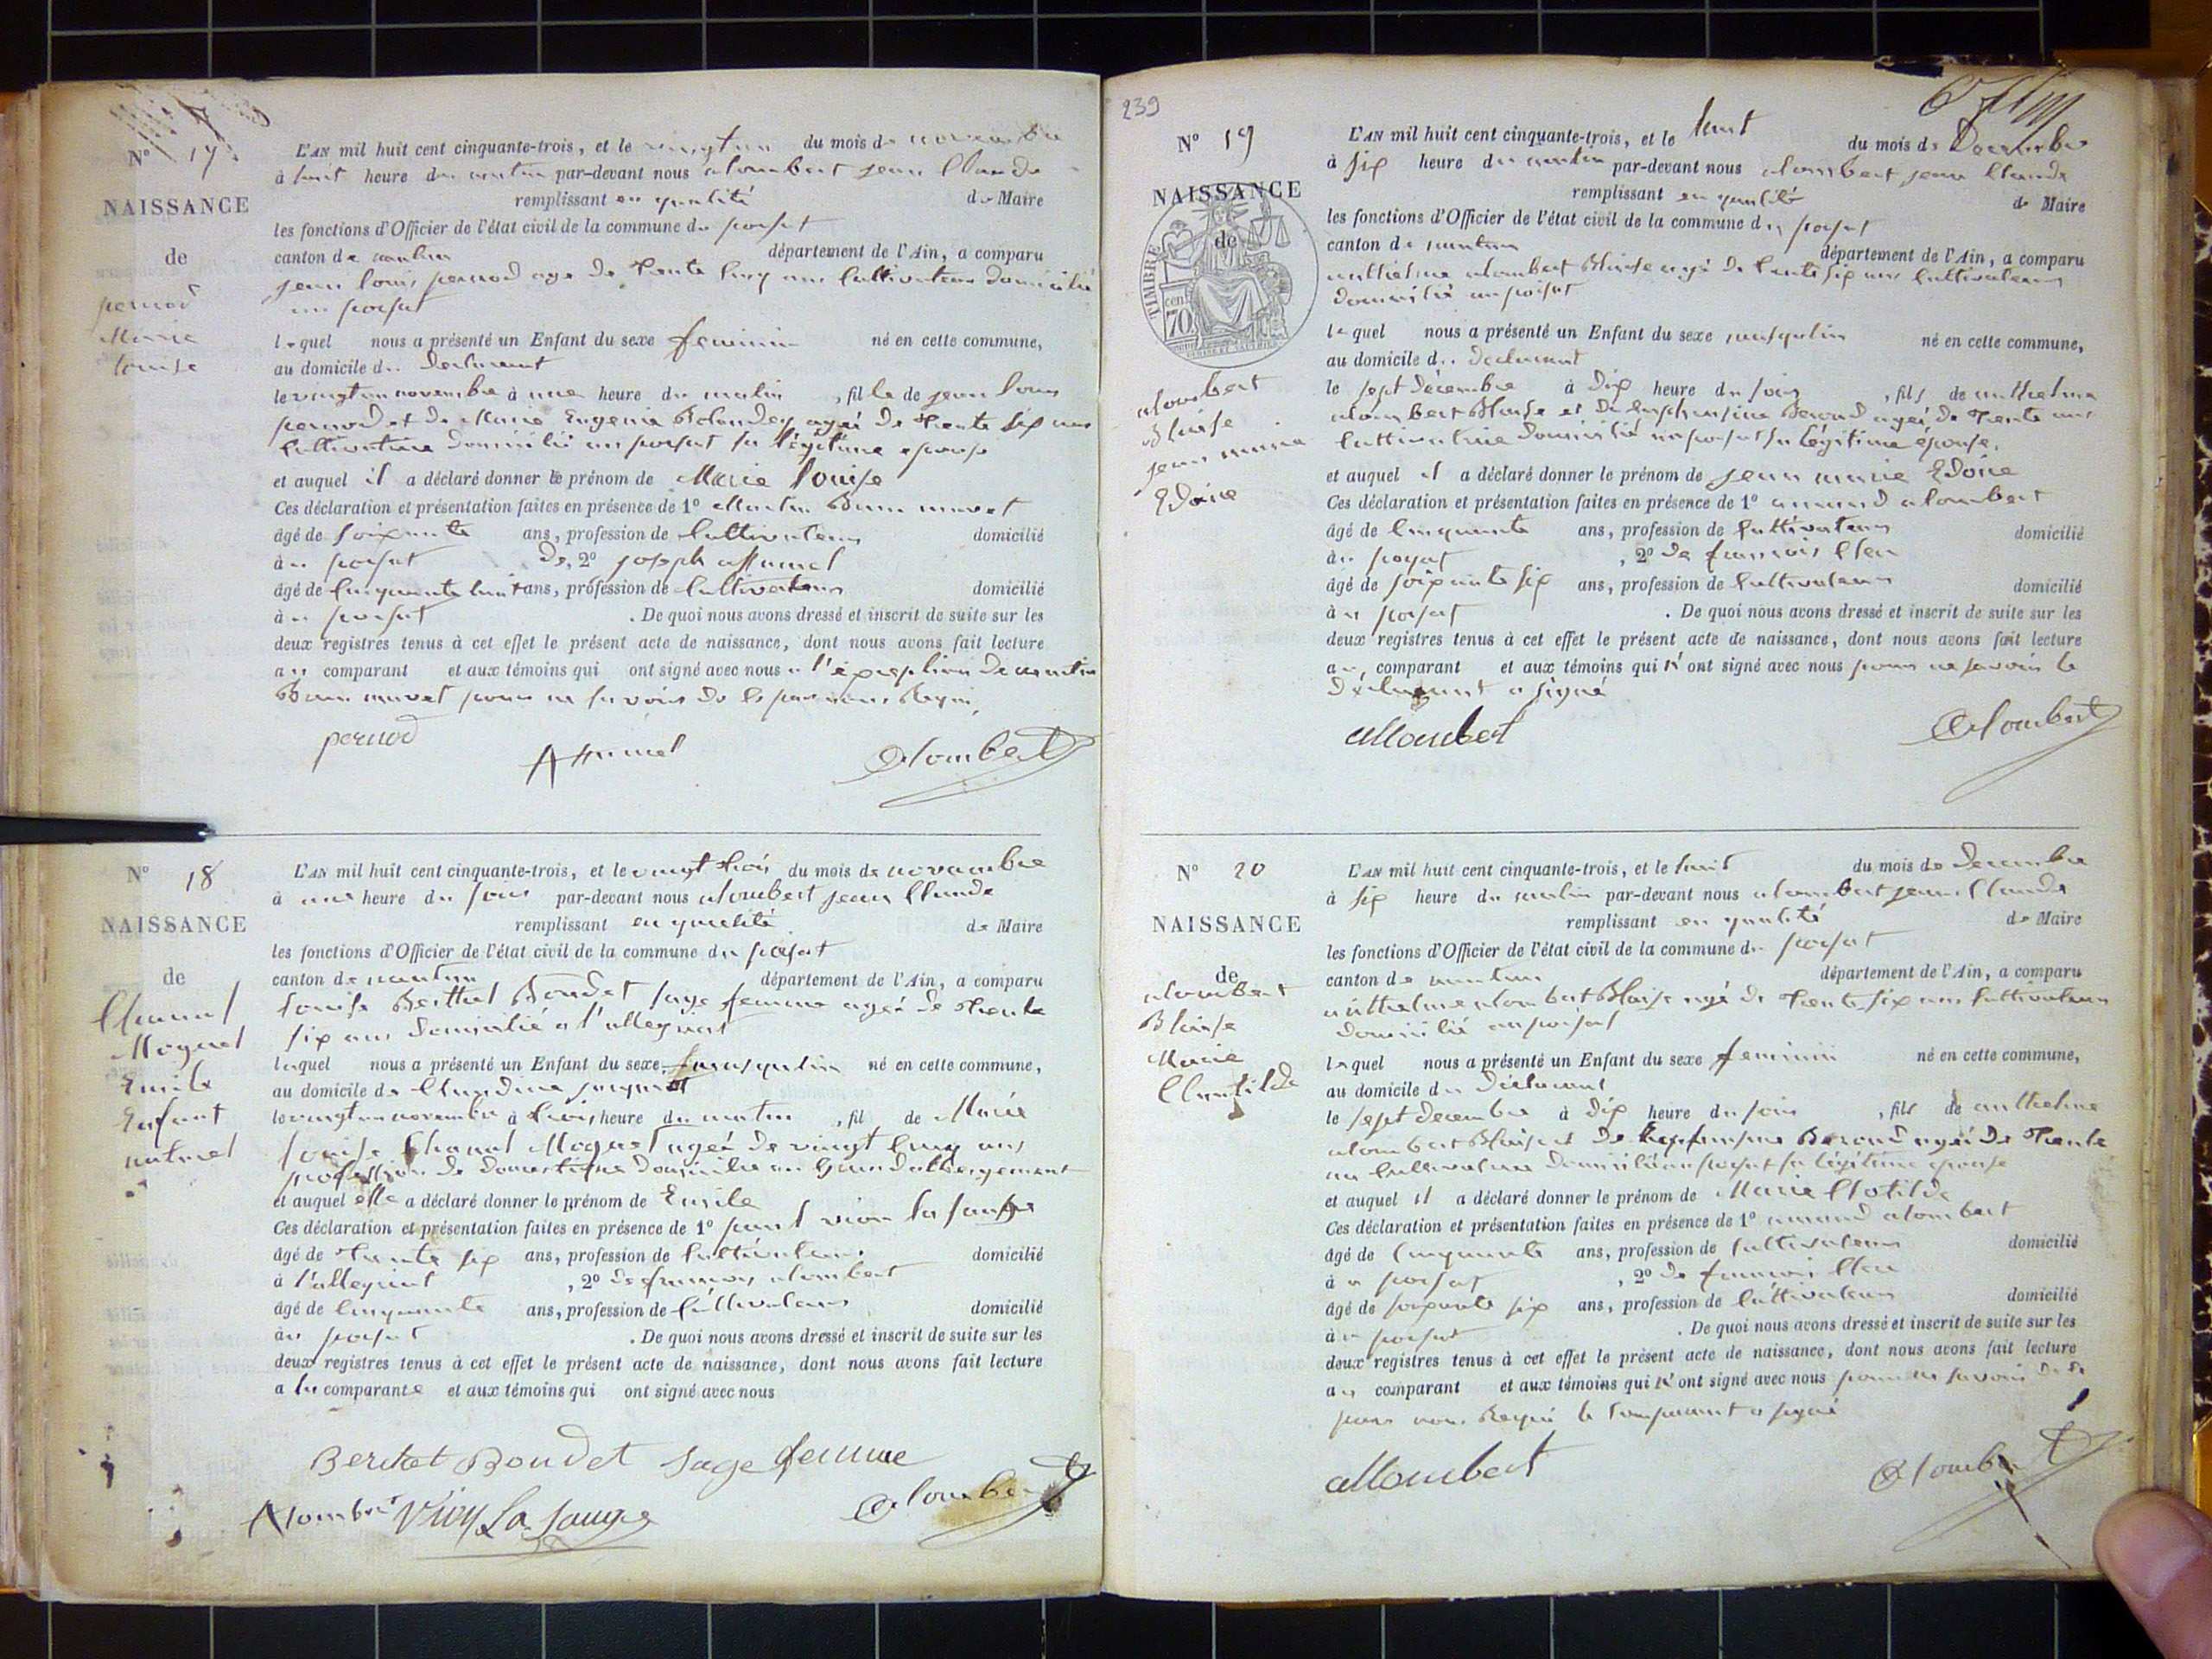 N° 17
NAISSANCE
de
pernod
Marie
louise
L'AN mil huit cent cinquante-trois, et le vingt un du mois de novembre
à huit heure du matin par-devant nous alombert jean Claude
remplissant en qualité de Maire
les fonctions d'Officier de l'état civil de la commune du poisat
canton de nantua département de l'Ain, a comparu
jean louis pernod age de trente cinq ans Cultivateur domicilié
au poisat
lequel nous a présenté un Enfant du sexe feminin né en cette commune,
au domicile du Declarant
le vingt un novembre à une heure du matin , fille de jean louis
pernod et de Marie Eugenie agée de trente six ans
Cultivatrice domicilié au poisat sa légitime epouse
et auquel il a déclaré donner le prénom de Marie louise
Ces déclaration et présentation faites en présence de 1°
âgé de soixante ans, profession de Cultivateur domicilié
àu poisat De, 2° joseph
âgé de cinquante huit ans, profession de Cultivateur domicilié
àu poisat . De quoi nous avons dressé et inscrit de suite sur les
deux registres tenus à cet effet le présent acte de naissance, dont nous avons fait lecture
au comparant et aux témoins qui ont signé avec nous a l'exception de
pour ne savoir de
pernod
Alombert
N° 18
NAISSANCE
de
Chanal
Moguet
Emile
Enfant
naturel
L'AN mil huit cent cinquante-trois, et le vingt trois du mois de novembre
à une heure du soir par-devant nous alombert jean Claude
remplissant en qualité de Maire
les fonctions d'Officier de l'état civil de la commune du poisat
canton de nantua département de l'Ain, a comparu
louise Berthet Boudet sage femme agée de trente
six ans domicilié a l'allegriat
laquel nous a présenté un Enfant du sexe masqulin né en cette commune,
au domicile de Claudine
le vingt un novembre à trois heure du matin , fil de Marie
louise Chanal Moguet agée de vingt cinq ans
profession de domestique domicilie au Grand abbergement
et auquel elle a déclaré donner le prénom de Emile
Ces déclaration et présentation faites en présence de 1° paul vion la sauge
âgé de trente six ans, profession de Cultivateur domicilié
à l'allegriat , 2° de françois alombert
âgé de Cinquante ans, profession de Cultivateur domicilié
àu poisat . De quoi nous avons dressé et inscrit de suite sur les
deux registres tenus à cet effet le présent acte de naissance, dont nous avons fait lecture
a la comparante et aux témoins qui ont signé avec nous
Berthet Boudet sage femme
Alombert Vion La Sauge Alombert
239
N° 19
NAISSANCE
de
TIMBRE
cent
70
alombert
Blaise
jean marie
Edoire
L'AN mil huit cent cinquante-trois, et le huit du mois de Decembre
à six heure du matin par-devant nous alombert jean Claude
remplissant en qualité de Maire
les fonctions d'Officier de l'état civil de la commune du poisat
canton de nantua département de l'Ain, a comparu
anthelme alombert Blaise agé de trente six ans Cultivateur
domicilié au poisat
lequel nous a présenté un Enfant du sexe masqulin né en cette commune,
au domicile du declarant
le sept décembre à dix heure du soir , fils de anthelme
alombert Blaise et de Berond agée de trente ans
Cultivatrice domicilié au poisat sa légitime épouse.
et auquel il a déclaré donner le prénom de jean marie Edoire
Ces déclaration et présentation faites en présence de 1° amand alombert
âgé de Cinquante ans, profession de Cultivateur domicilié
àu poisat , 2° de françois
âgé de soixante six ans, profession de Cultivateur domicilié
àu poisat . De quoi nous avons dressé et inscrit de suite sur les
deux registres tenus à cet effet le présent acte de naissance, dont nous avons fait lecture
au comparant et aux témoins qui n'ont signé avec nous pour ne savoir le
déclarant a signé
allombert Alombert
N° 20
NAISSANCE
de
alombert
Blaise
Marie
Clautilde
L'AN mil huit cent cinquante-trois, et le huit du mois de decembre
à six heure du matin par-devant nous alombert jean Claude
remplissant en qualité de Maire
les fonctions d'Officier de l'état civil de la commune du poisat
canton de nantua département de l'Ain, a comparu
anthelme alombert Blaise agé de trente six ans Cultivateur
domicilié au poisat
lequel nous a présenté un Enfant du sexe feminin né en cette commune,
au domicile du declarant
le sept decembre à dix heure du soir , fils de anthelme
alombert Blaise et de Berond agée de trente
an Cultivatrice domicilié au poisat sa légitime epouse
et auquel il a déclaré donner le prénom de Marie Clotilde
Ces déclaration et présentation faites en présence de 1° amand alombert
âgé de Cinquante ans, profession de Cultivateur domicilié
àu poisat , 2° de françois
âgé de soixante six ans, profession de Cultivateur domicilié
àu poisat . De quoi nous avons dressé et inscrit de suite sur les
deux registres tenus à cet effet le présent acte de naissance, dont nous avons fait lecture
au comparant et aux témoins qui n'ont signé avec nous pour ne savoir de
par nous Requi le Comparant a signé
allombert Alombert